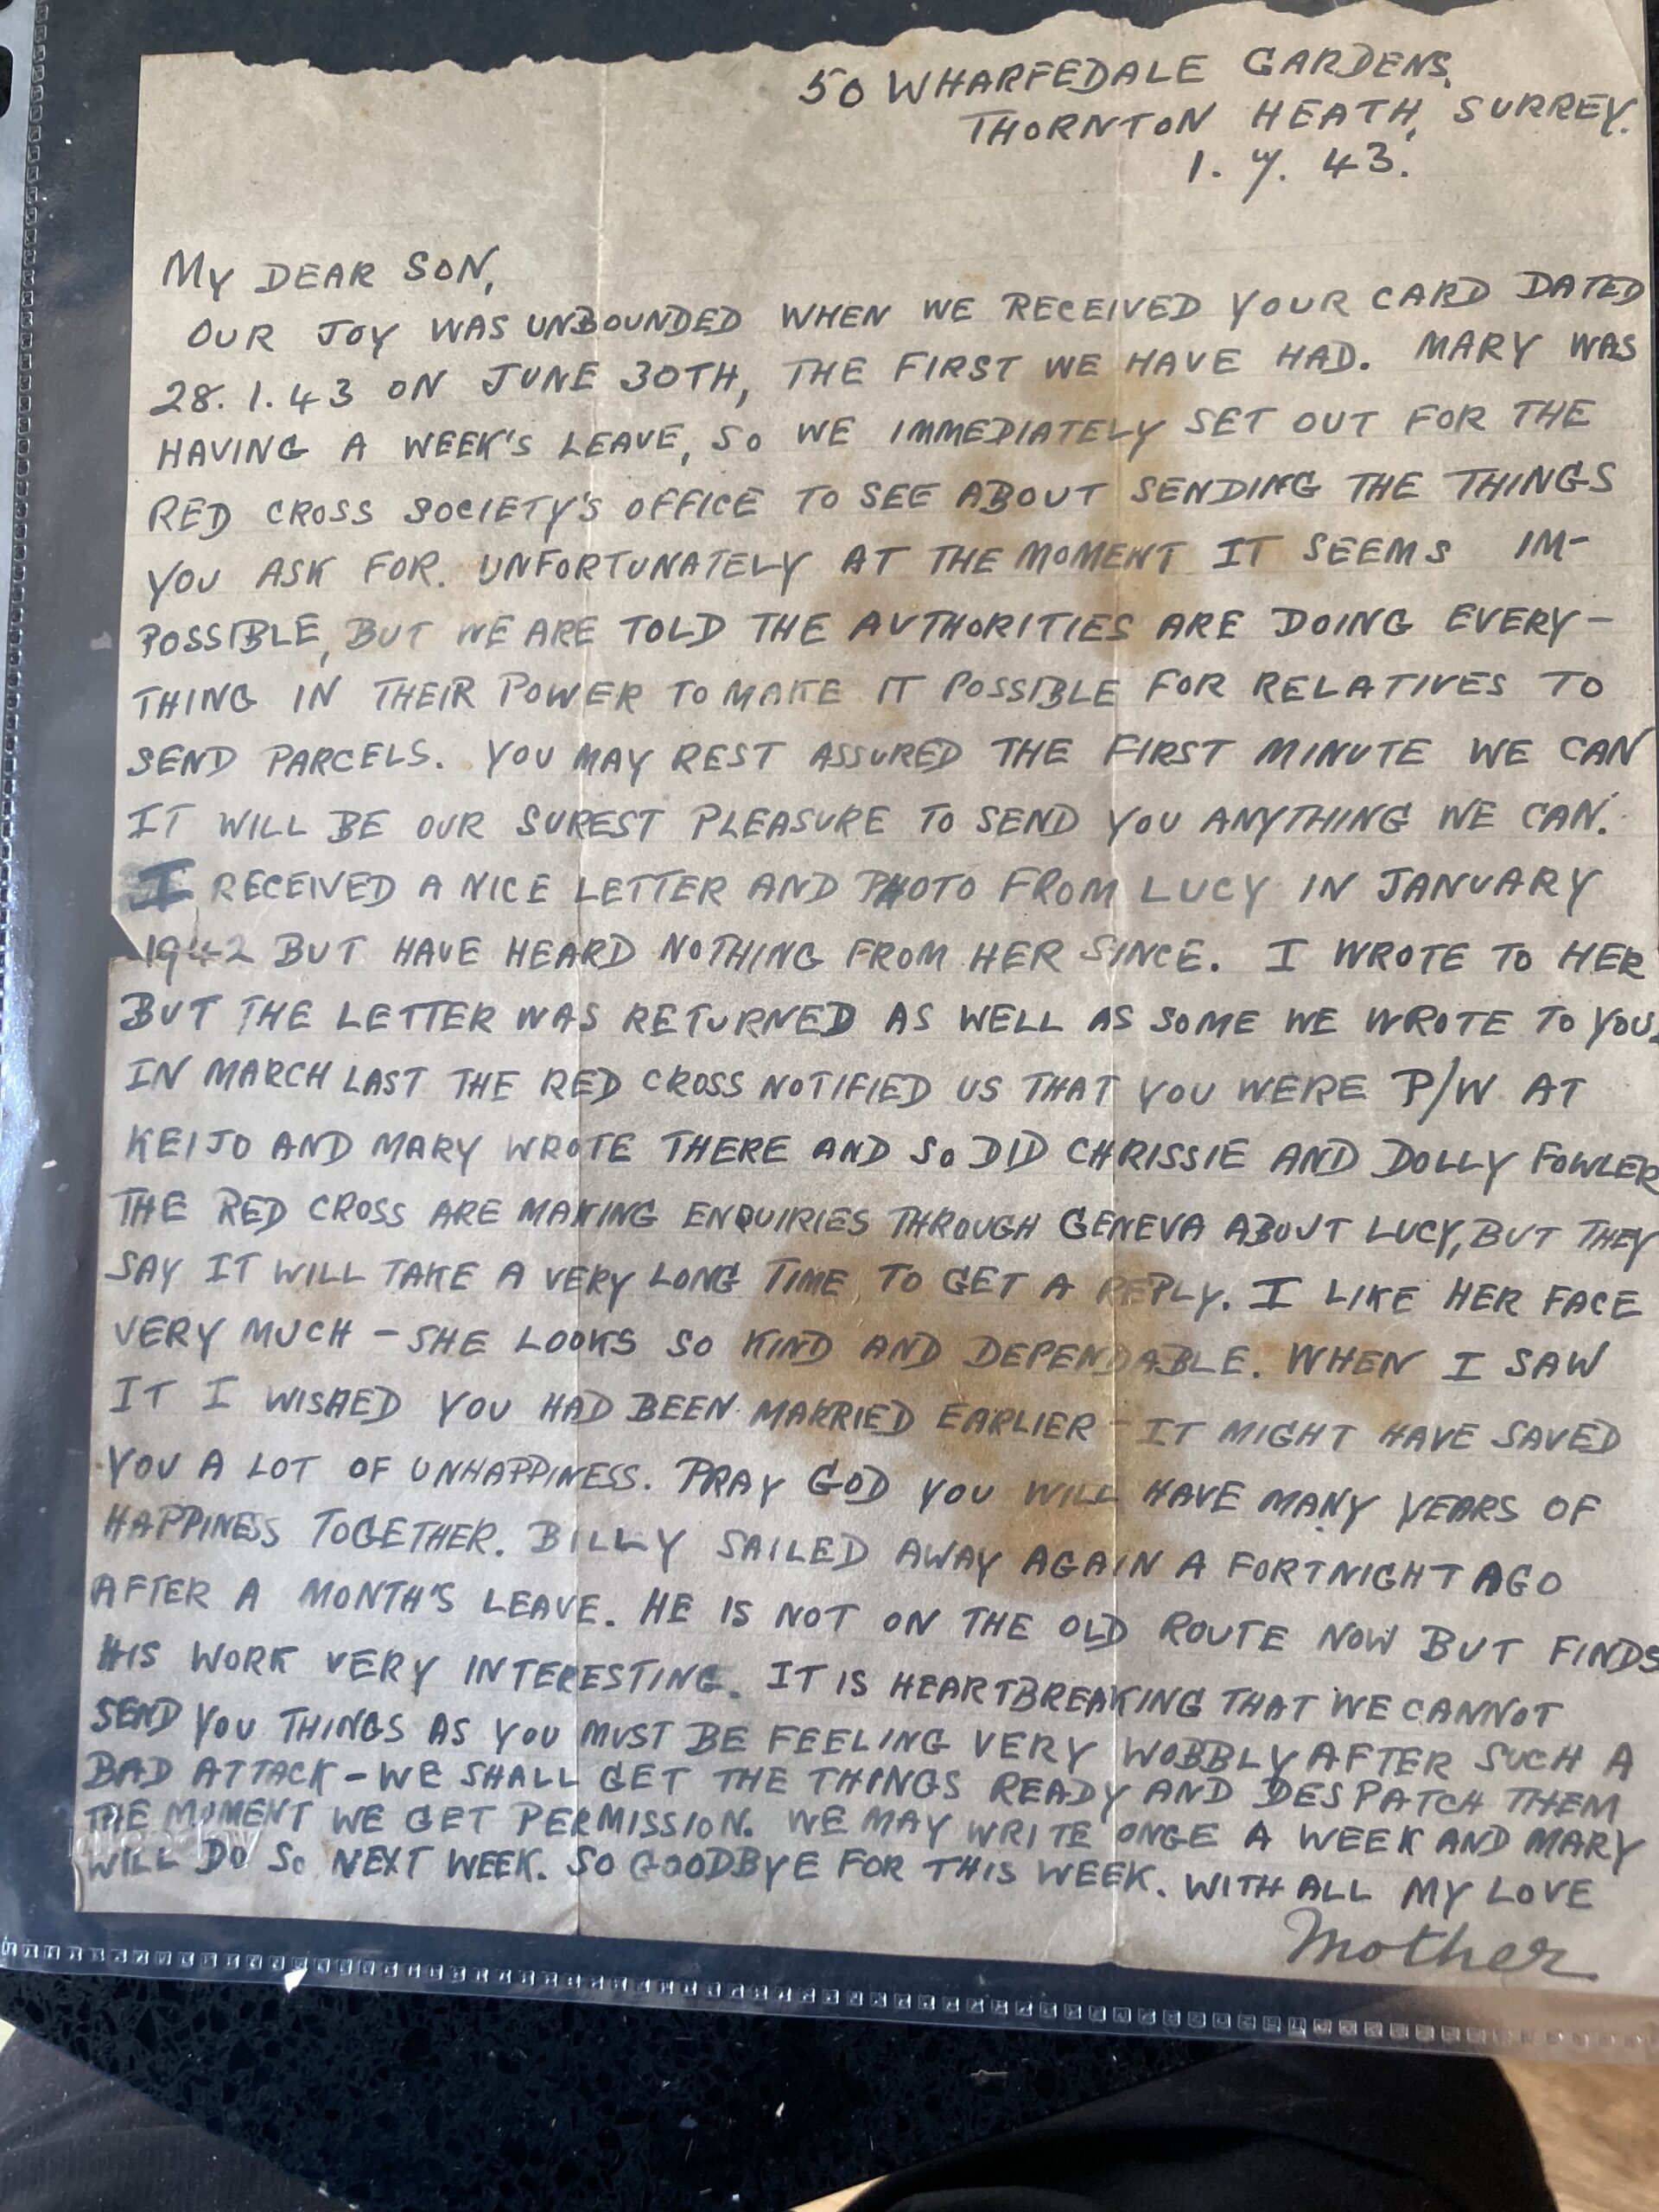 50 WHARFEDALE GARDENS,
THORNTON HEATH, SURREY.
1. 7. 43.
MY DEAR SON,
OUR JOY WAS UNBOUNDED WHEN WE RECEIVED YOUR CARD DATED
28. 1. 43 ON JUNE 30TH, THE FIRST WE HAVE HAD. MARY WAS
HAVING A WEEK'S LEAVE, SO WE IMMEDIATELY SET OUT FOR THE
RED CROSS SOCIETY'S OFFICE TO SEE ABOUT SENDING THE THINGS
YOU ASK FOR. UNFORTUNATELY AT THE MOMENT IT SEEMS IM-
POSSIBLE, BUT WE ARE TOLD THE AUTHORITIES ARE DOING EVERY-
THING IN THEIR POWER TO MAKE IT POSSIBLE FOR RELATIVES TO
SEND PARCELS. YOU MAY REST ASSURED THE FIRST MINUTE WE CAN
IT WILL BE OUR SUREST PLEASURE TO SEND YOU ANYTHING WE CAN.
I RECEIVED A NICE LETTER AND PHOTO FROM LUCY IN JANUARY
1942 BUT HAVE HEARD NOTHING FROM HER SINCE. I WROTE TO HER
BUT THE LETTER WAS RETURNED AS WELL AS SOME WE WROTE TO YOU.
IN MARCH LAST THE RED CROSS NOTIFIED US THAT YOU WERE P/W AT
KEIJO AND MARY WROTE THERE AND SO DID CHRISSIE AND DOLLY FOWLER
THE RED CROSS ARE MAKING ENQUIRIES THROUGH GENEVA ABOUT LUCY, BUT THEY
SAY IT WILL TAKE A VERY LONG TIME TO GET A REPLY. I LIKE HER FACE
VERY MUCH - SHE LOOKS SO KIND AND DEPENDABLE. WHEN I SAW
IT I WISHED YOU HAD BEEN MARRIED EARLIER - IT MIGHT HAVE SAVED
YOU A LOT OF UNHAPPINESS. PRAY GOD YOU WILL HAVE MANY YEARS OF
HAPPINESS TOGETHER. BILLY SAILED AWAY AGAIN A FORTNIGHT AGO
AFTER A MONTH'S LEAVE. HE IS NOT ON THE OLD ROUTE NOW BUT FINDS
HIS WORK VERY INTERESTING. IT IS HEARTBREAKING THAT WE CANNOT
SEND YOU THINGS AS YOU MUST BE FEELING VERY WOBBLY AFTER SUCH A
BAD ATTACK - WE SHALL GET THE THINGS READY AND DESPATCH THEM
THE MOMENT WE GET PERMISSION. WE MAY WRITE ONCE A WEEK AND MARY
WILL DO SO NEXT WEEK. SO GOODBYE FOR THIS WEEK. WITH ALL MY LOVE
Mother